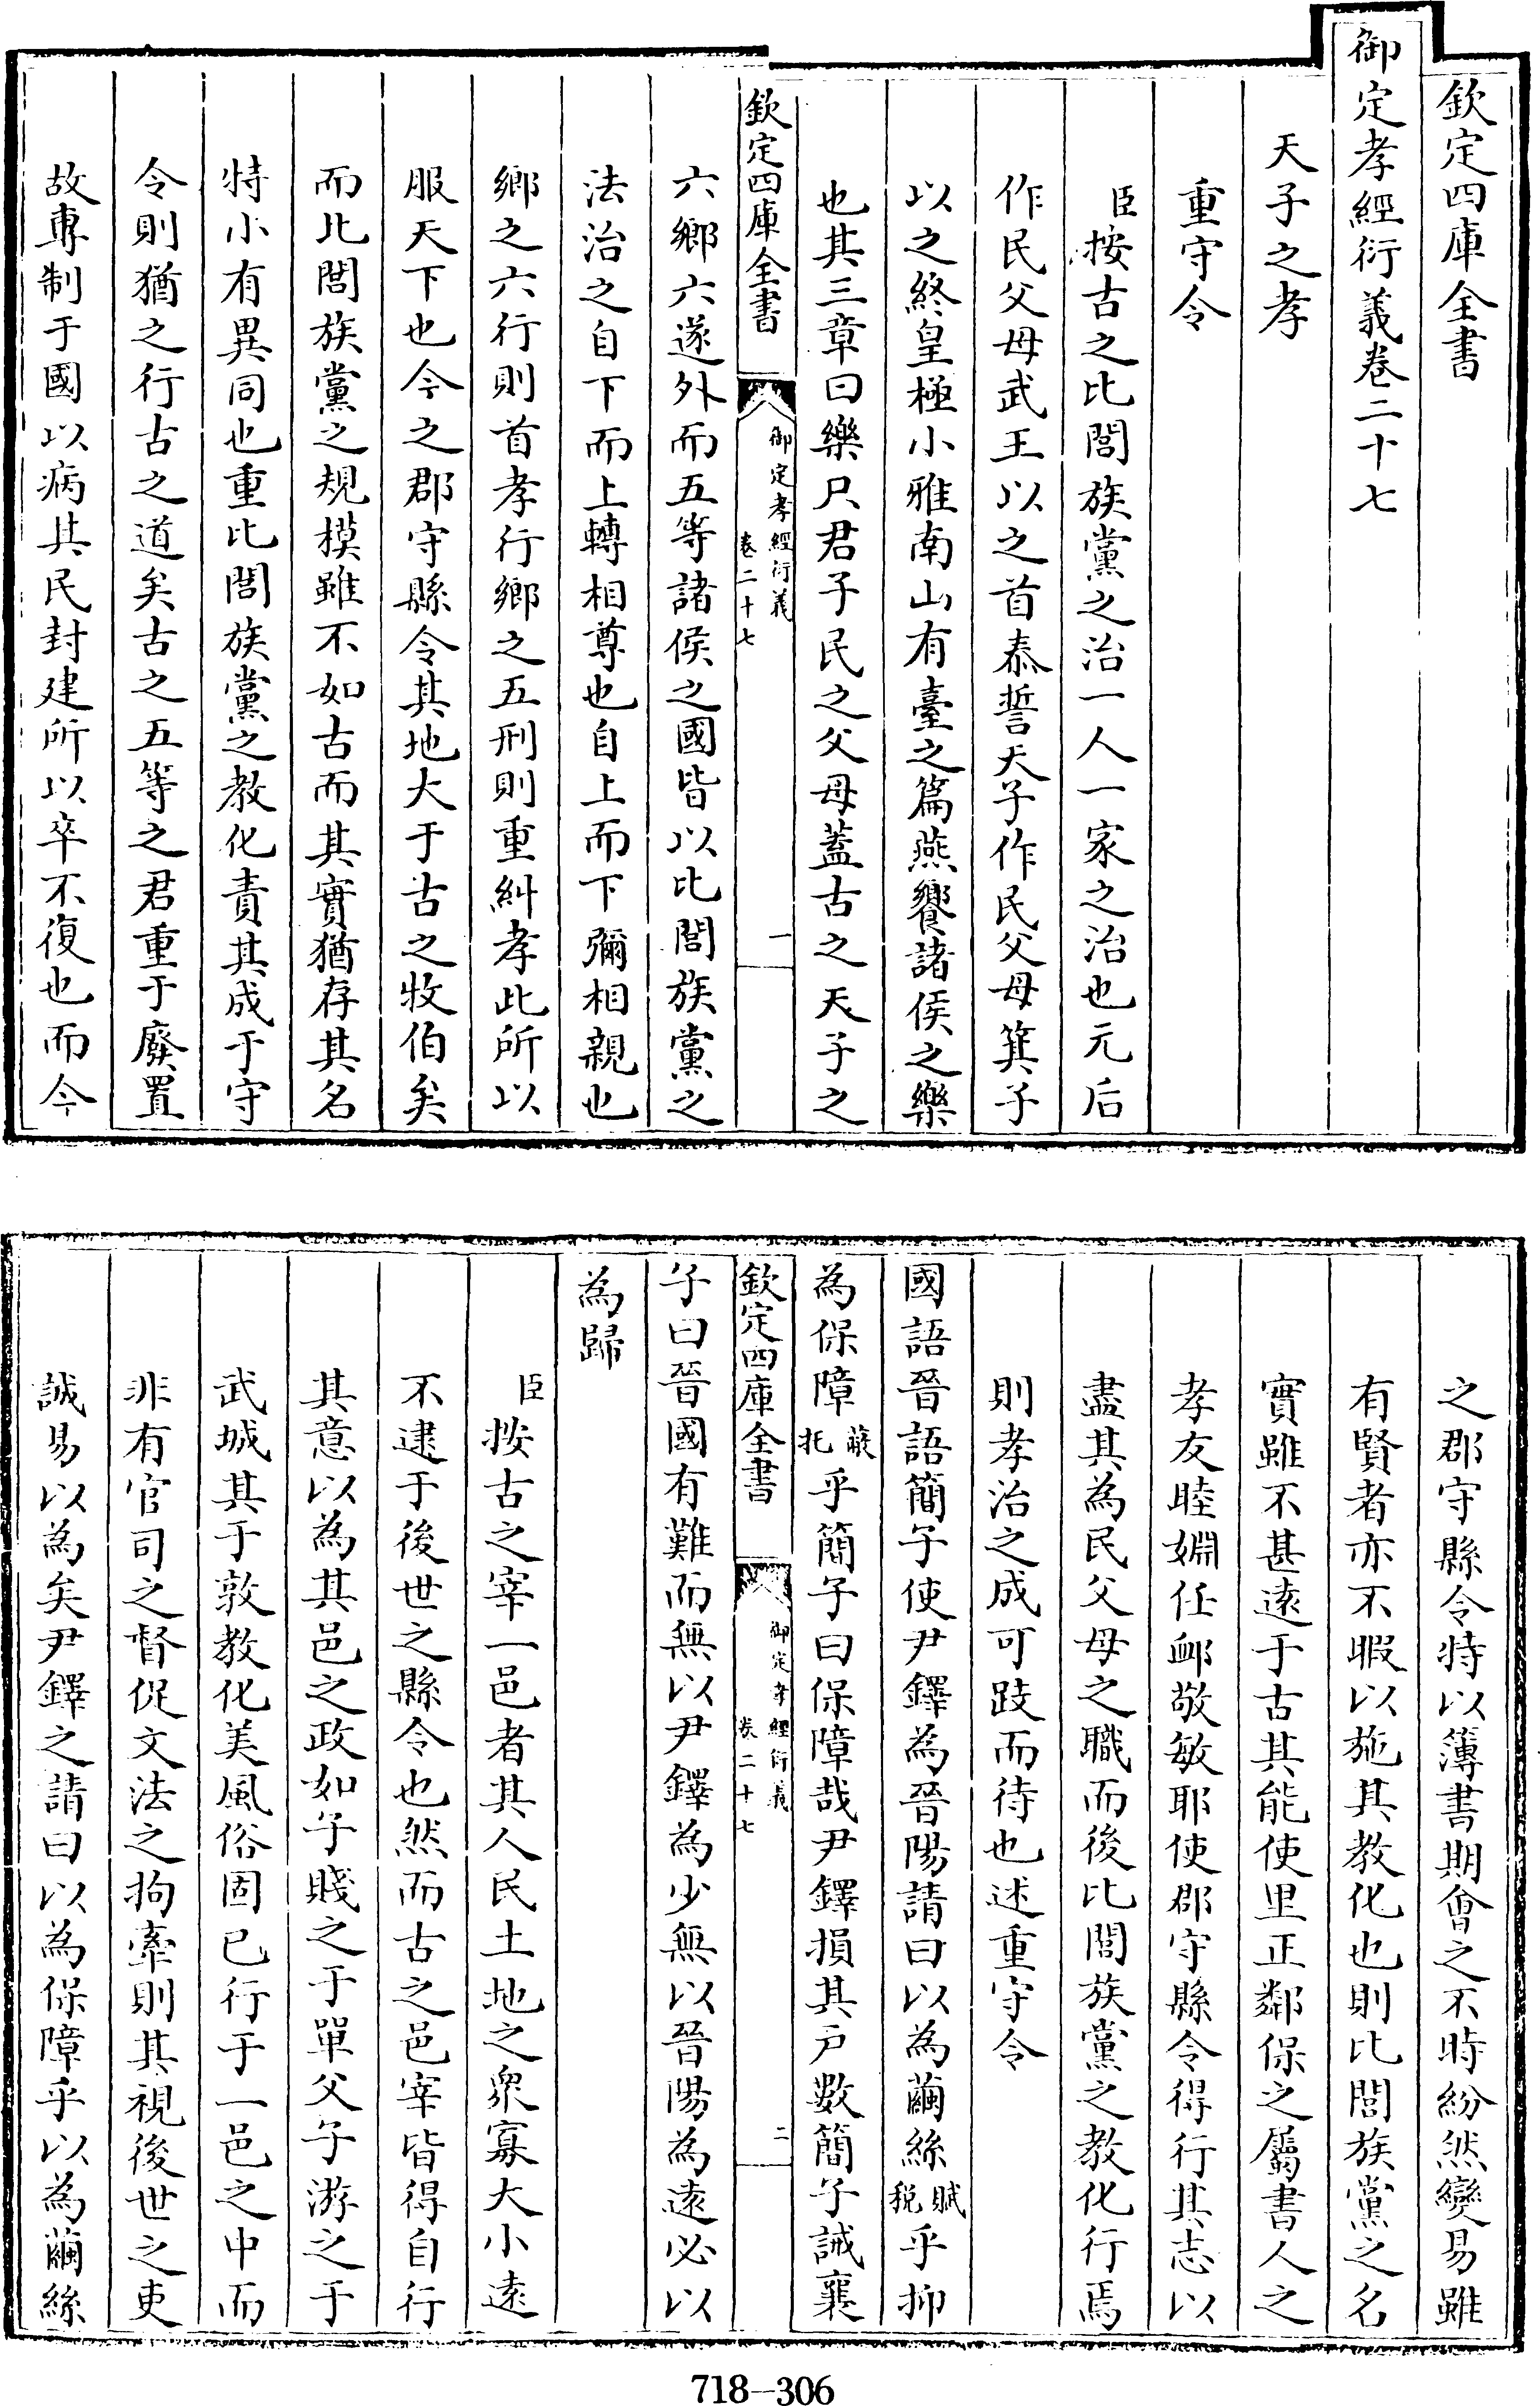 欽定四庫全書
御定孝經衍義卷二十七
天子之孝
重守令
臣按古之比閭族黨之治一人一家之治也元后
作民父母武王以之首泰誓天子作民父母箕子
以之終皇極小雅南山有臺之篇燕饗諸侯之樂
也其三章曰樂只君子民之父母蓋古之天子之
欽定四庫全書
御定孝經衍義
卷二十七
一
六鄉六遂外而五等諸侯之國皆以比閭族黨之
法治之自下而上轉相尊也自上而下彌相親也
鄉之六行則首孝行鄉之五刑則重糾孝此所以
服天下也今之郡守縣令其地大于古之牧伯矣
而比閭族黨之規模雖不如古而其實猶存其名
特小有異同也重比閭族黨之教化責其成于守
令則猶之行古之道矣古之五等之君重于廢置
故專制于國以病其民封建所以卒不復也而今
之郡守縣令特以簿書期會之不時紛然變易雖
有賢者亦不暇以施其教化也則比閭族黨之名
實雖不甚遠于古其能使里正鄰保之屬書人之
孝友睦婣任䘏敬敏耶使郡守縣令得行其志以
盡其為民父母之職而後比閭族黨之教化行焉
則孝治之成可跂而待也述重守令
國語晉語簡子使尹鐸為晉陽請曰以為繭絲賦稅乎抑
為保障蔽扞乎簡子曰保障哉尹鐸損其戶數簡子誡襄
欽定四庫全書
御定孝經衍義
卷二十七
二
子曰晉國有難而無以尹鐸為少無以晉陽為遠必以
為歸
臣按古之宰一邑者其人民土地之衆寡大小遠
不逮于後世之縣令也然而古之邑宰皆得自行
其意以為其邑之政如子賤之于單父子游之于
武城其于敦教化美風俗固已行于一邑之中而
非有官司之督促文法之拘牽則其視後世之吏
誠易以為矣尹鐸之請曰以為保障乎以為繭絲
718-306